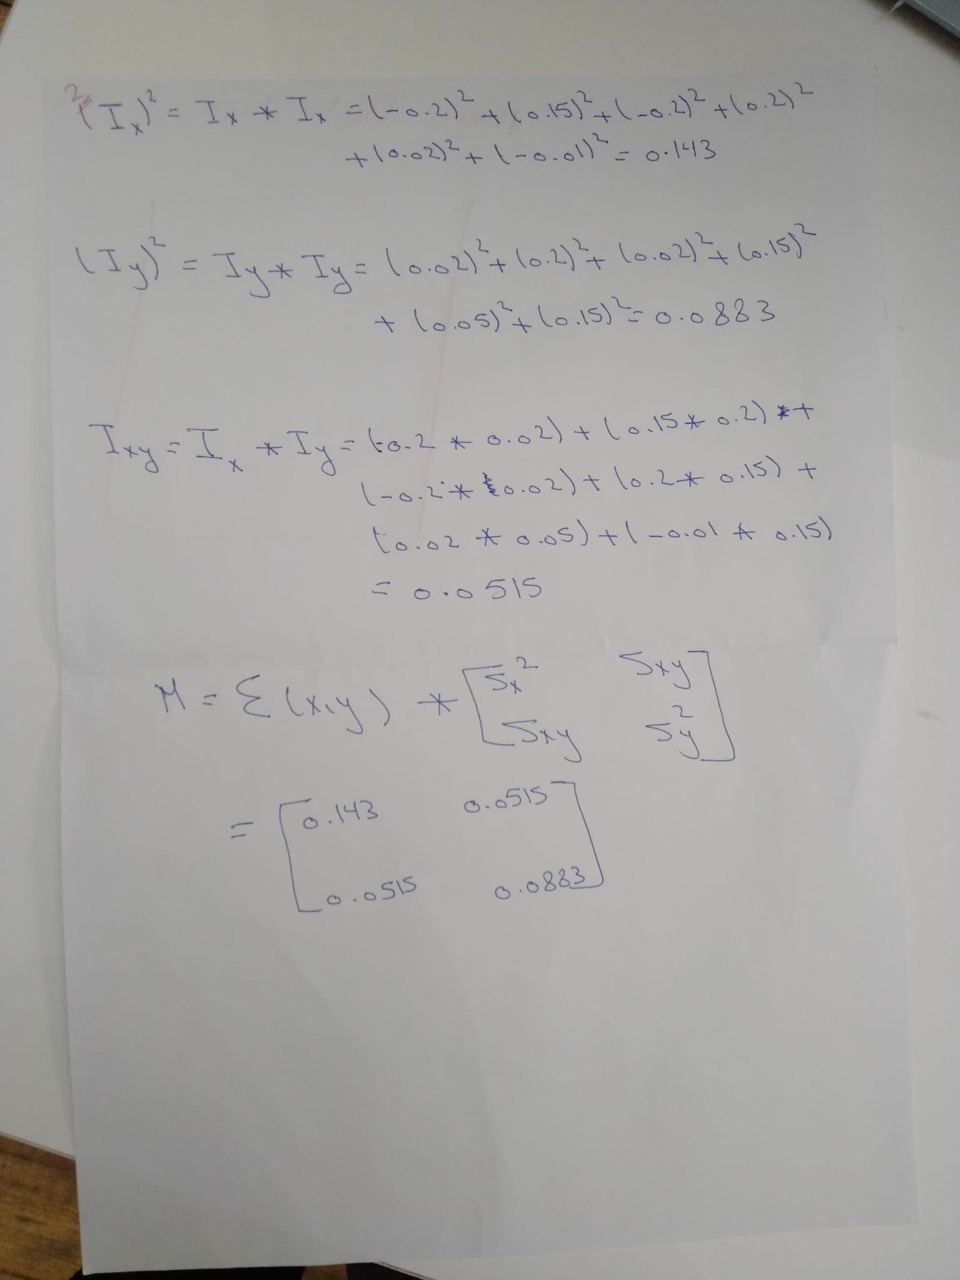 2.
(Ix)² = Ix * Ix = (-0.2)² + (0.15)² + (-0.2)² + (0.2)²
+ (0.02)² + (-0.01)² = 0.143
(Iy)² = Iy * Iy = (0.02)² + (0.2)² + (0.02)² + (0.15)²
+ (0.05)² + (0.15)² = 0.0883
Ixy = Ix * Iy = (-0.2 * 0.02) + (0.15 * 0.2) +
(-0.2 * 0.02) + (0.2 * 0.15) +
(0.02 * 0.05) + (-0.01 * 0.15)
= 0.0515
M = Σ(x,y) * [Sx² Sxy
Sxy Sy²]
= [0.143 0.0515
0.0515 0.0883]